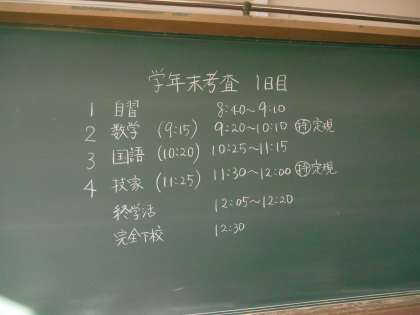 学年末考査 1日目
1 自習 8:40～9:10
2 数学 (9:15) 9:20～10:10 持定規
3 国語 (10:20) 10:25～11:15
4 技家 (11:25) 11:30～12:00 持定規
終学活 12:05～12:20
完全下校 12:30